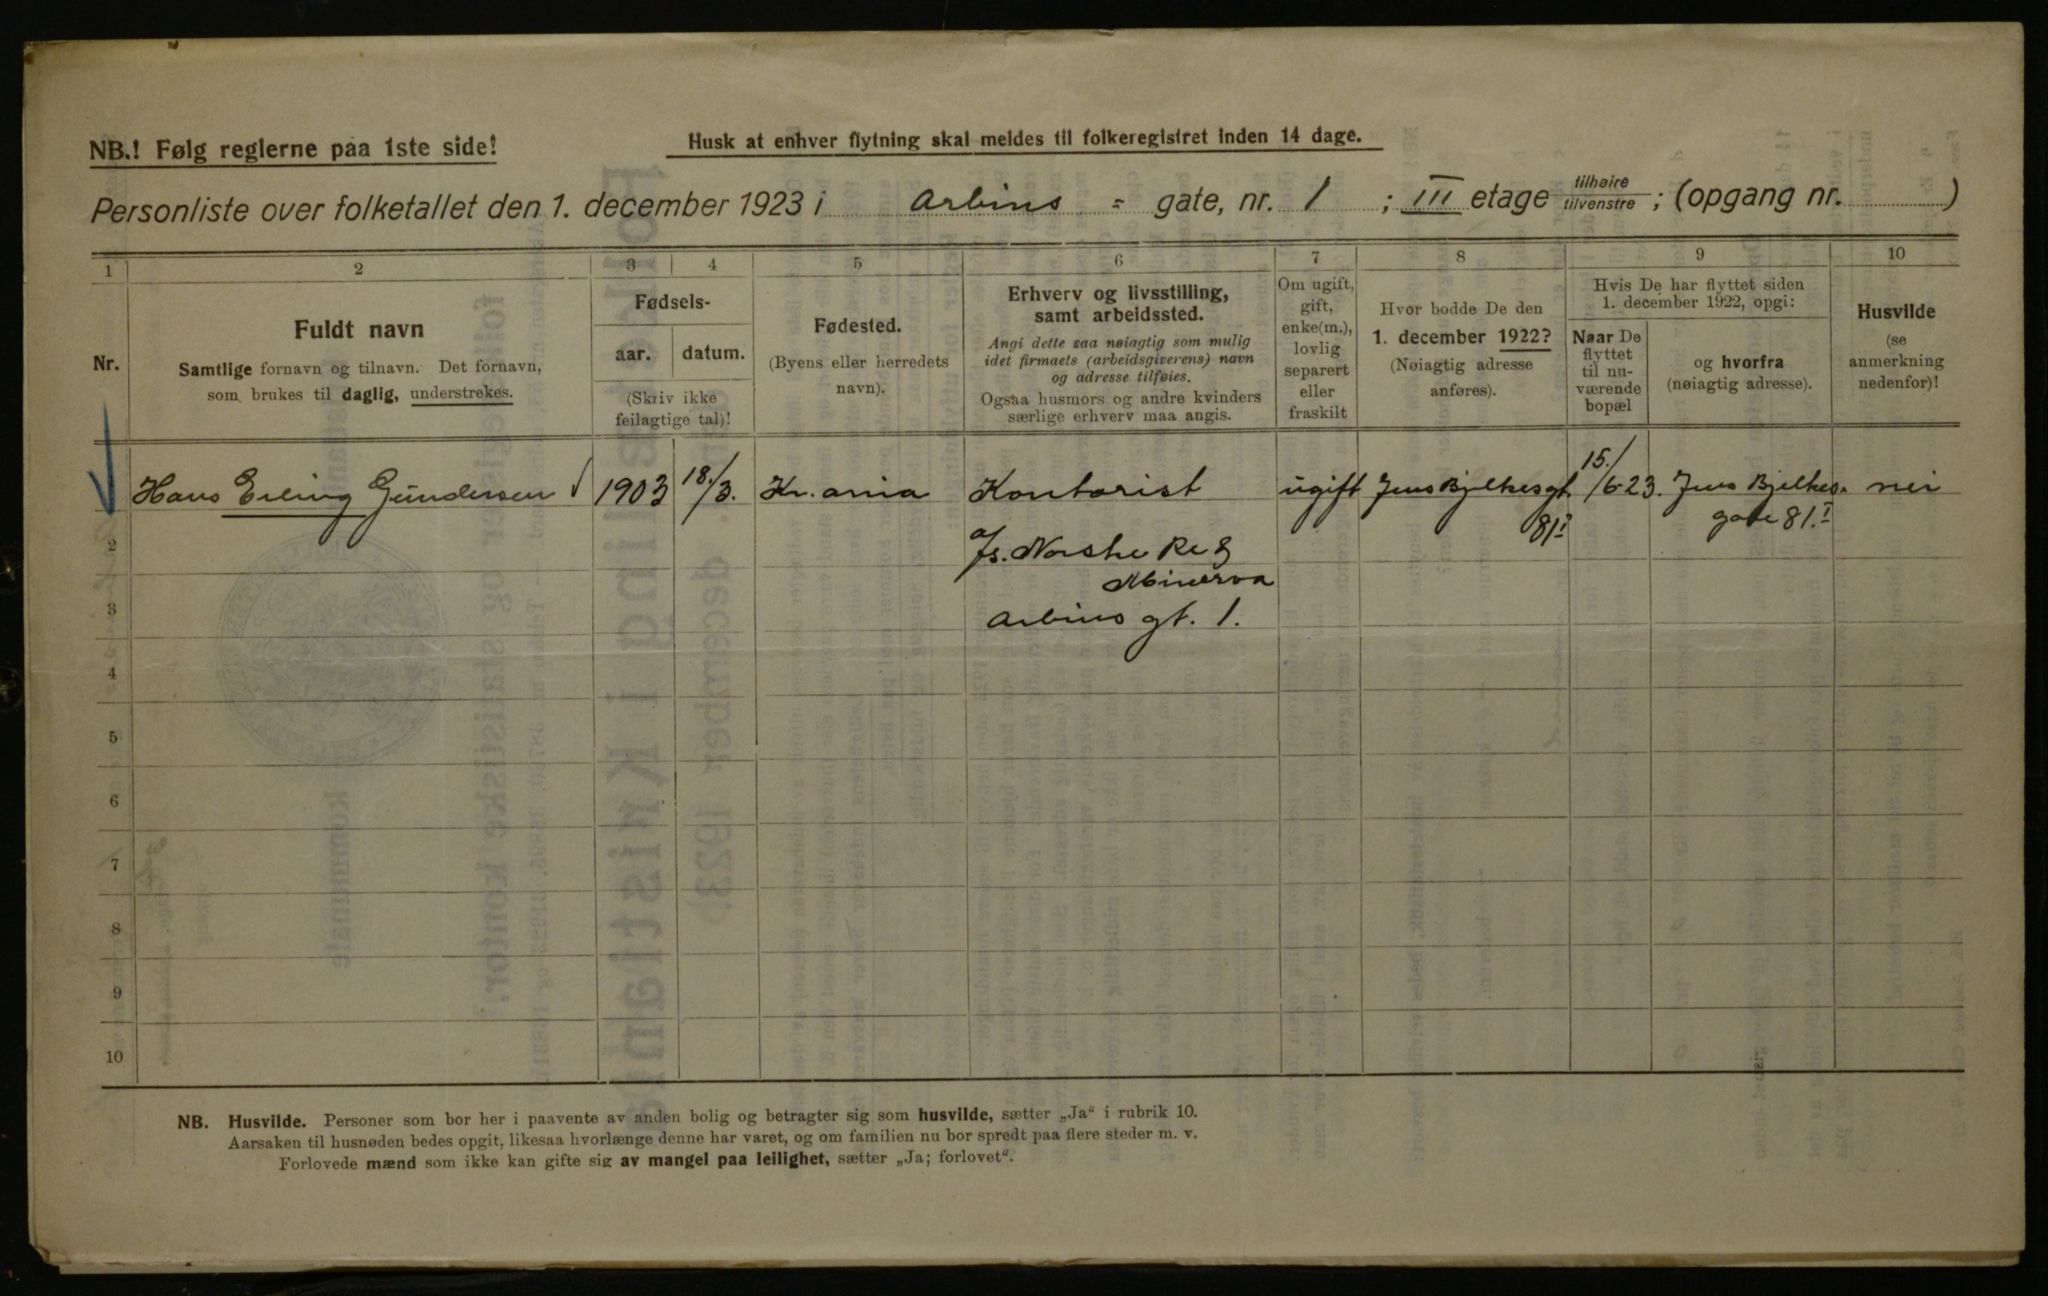 NB.! Følg reglerne paa 1ste side!
Husk at enhver flytning skal meldes til folkeregistret inden 14 dage.
Personliste over folketallet den 1. december 1923 i Arbins = gate, nr. 1 ; III etage tilhøire tilvenstre ; (opgang nr. )
1 2 3 4 5 6 7 8 9 10
Nr.
Fuldt navn
Samtlige fornavn og tilnavn. Det fornavn,
som brukes til daglig, understrekes.
Fødsels-
aar. datum.
(Skriv ikke
feilagtige tal)!
Fødested.
(Byens eller herredets
navn).
Erhverv og livsstilling,
samt arbeidssted.
Angi dette saa nøiagtig som mulig
idet firmaets (arbeidsgiverens) navn
og adresse tilføies.
Ogsaa husmors og andre kvinders
særlige erhverv maa angis.
Om ugift,
gift,
enke(m.),
lovlig
separert
eller
fraskilt
Hvor bodde De den
1. december 1922?
(Nøiagtig adresse
anføres).
Hvis De har flyttet siden
1. december 1922, opgi:
Naar De
flyttet
til nu-
værende
bopæl
og hvorfra
(nøiagtig adresse).
Husvilde
(se
anmerkning
nedenfor)!
Hans Erling Gundersen 1903 18./3. Kr.ania Kontorist ugift Jens Bjelkesgt. 15./6-23. Jens Bjelkes- nei
81I gate 81.I
2 A/s. Norske Re &
Minerva
3 Arbins gt. 1.
4
5
6
7
8
9
10
NB. Husvilde. Personer som bor her i paavente av anden bolig og betragter sig som husvilde, sætter „Ja“ i rubrik 10.
Aarsaken til husnøden bedes opgit, likesaa hvorlænge denne har varet, og om familien nu bor spredt paa flere steder m. v.
Forlovede mænd som ikke kan gifte sig av mangel paa leilighet, sætter „Ja; forlovet“.